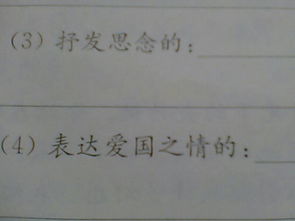 (3) 抒发思念的:
(4) 表达爱国之情的: